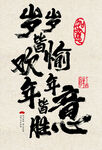 岁岁皆欢愉
年年皆胜意